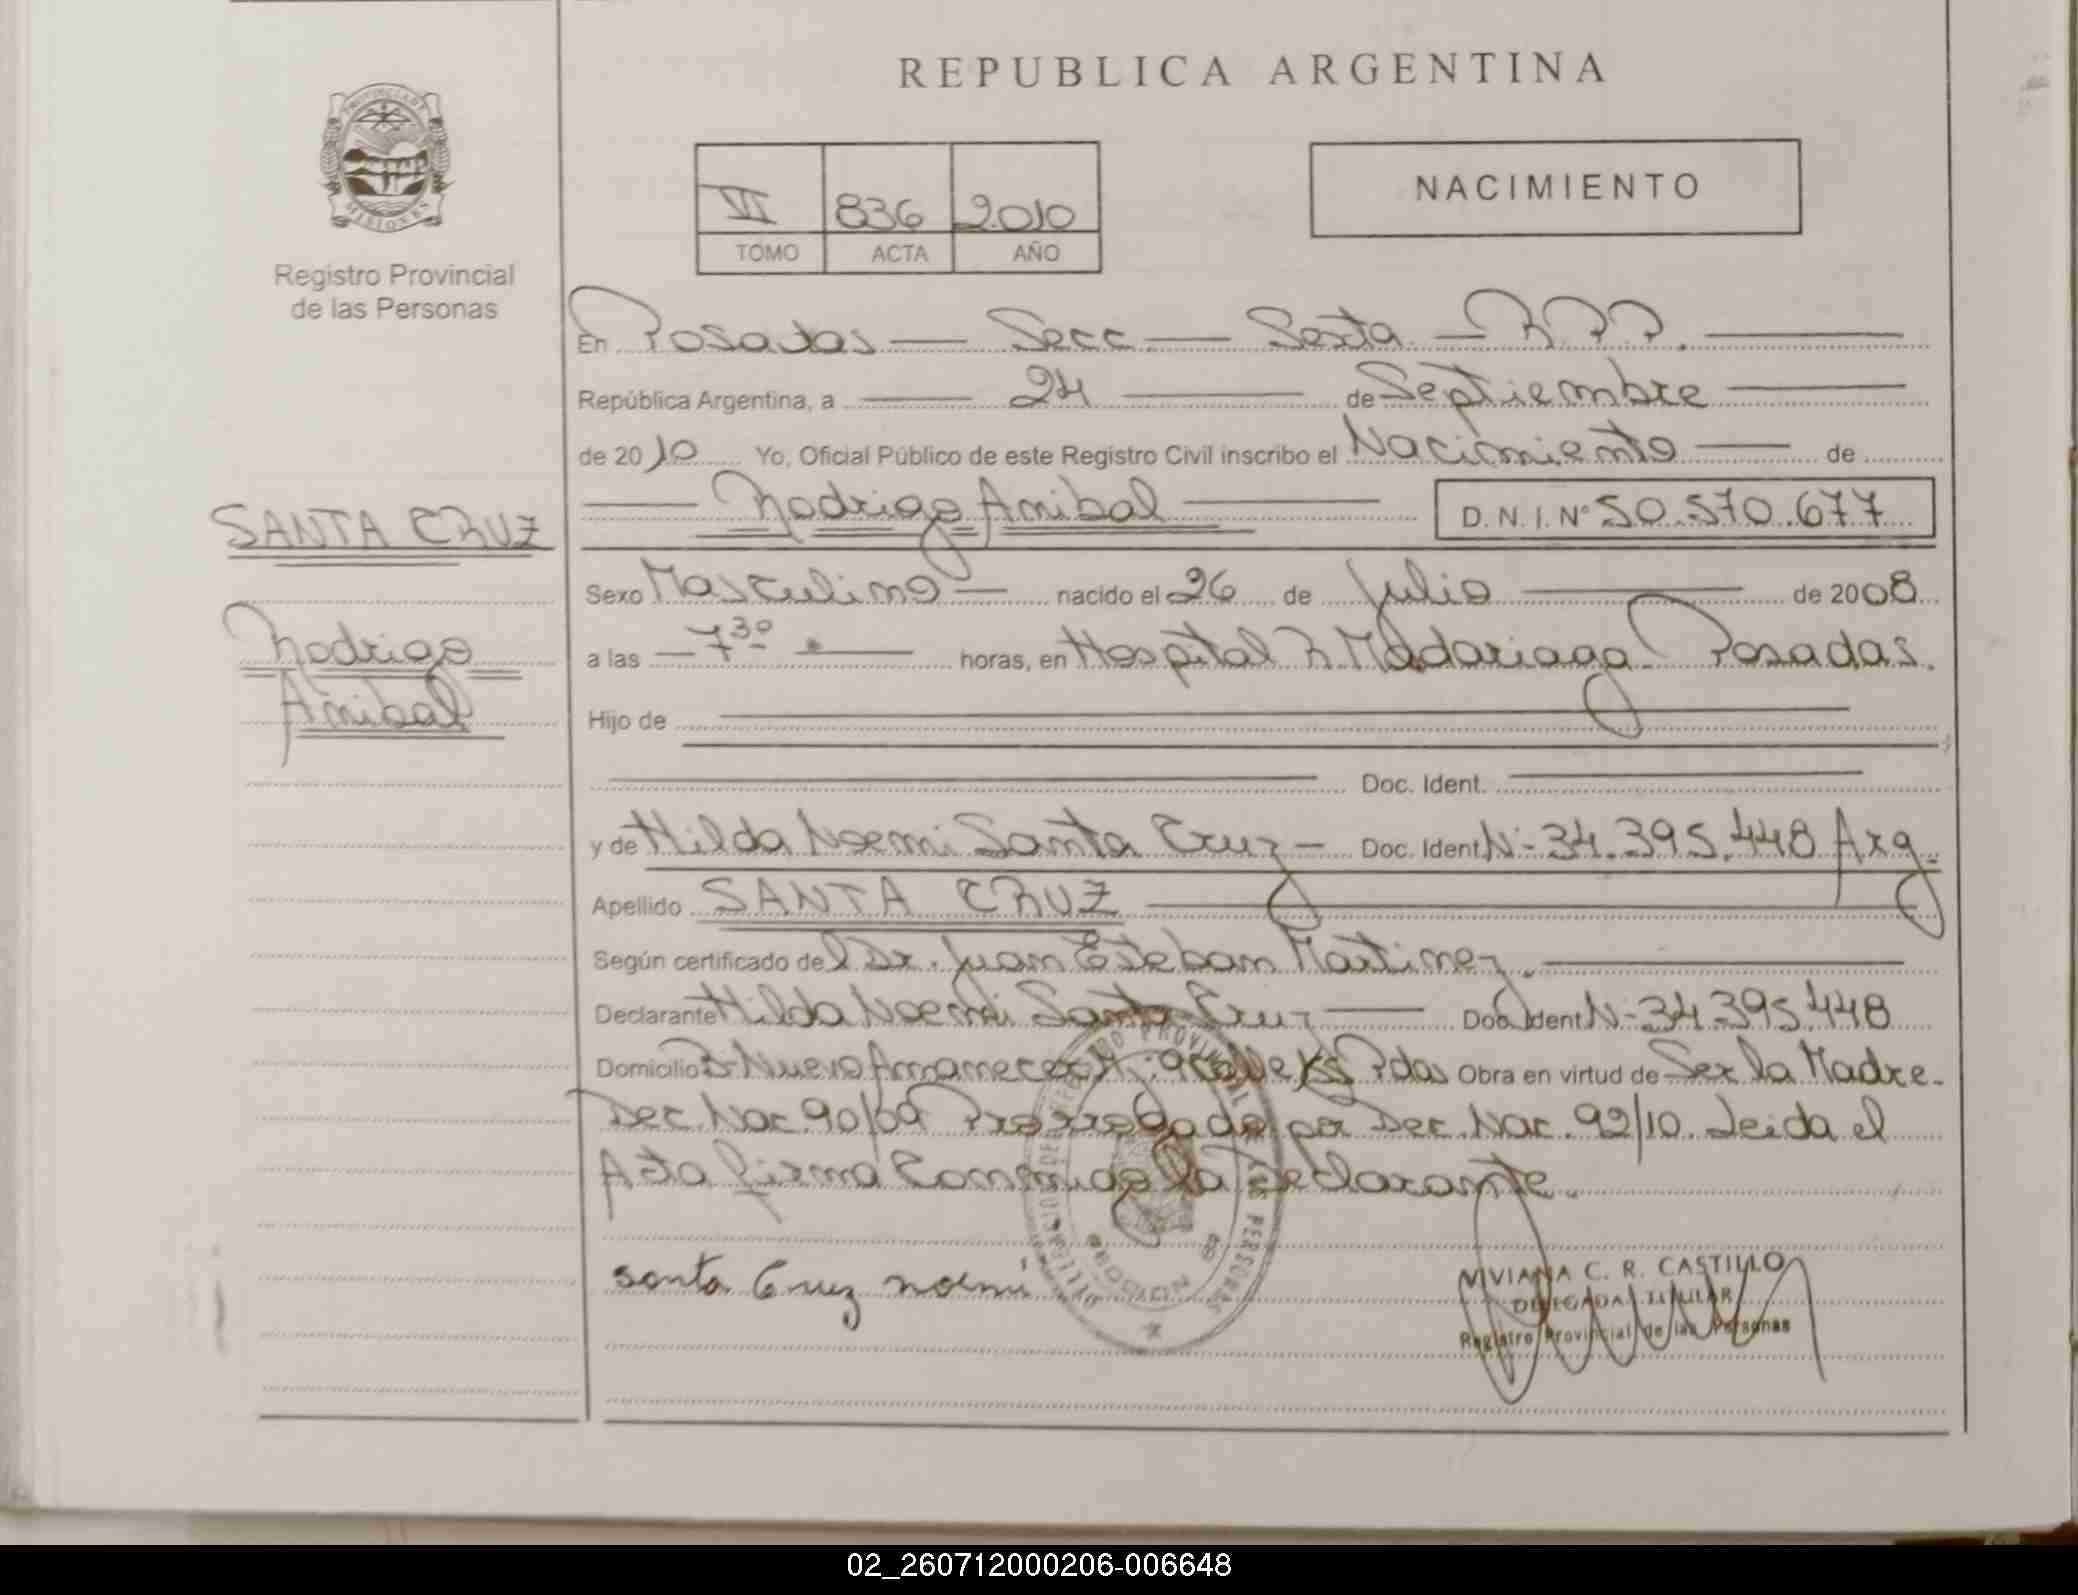 REPUBLICA ARGENTINA
PROVINCIA DE MISIONES
Registro Provincial
de las Personas
VI 836 2010
TOMO ACTA AÑO
NACIMIENTO
En Posadas — Secc — Sexta — R.P.P. —
República Argentina, a — 24 — de Septiembre —
de 2010 Yo, Oficial Público de este Registro Civil inscribo el Nacimiento — de
— Rodrigo Anibal — D.N.I. Nº 50.570.677
SANTA CRUZ
Rodrigo
Anibal
Sexo Masculino — nacido el 26 de Julio — de 2008
a las — 7 30 — horas, en Hospital R Madariaga Posadas.
Hijo de
Doc. Ident.
y de Hilda Noemi Santa Cruz — Doc. Ident. N- 34.395.448 Arg.
Apellido SANTA CRUZ —
Según certificado del Dr. Juan Esteban Martinez. —
Declarante Hilda Noemi Santa Cruz — Doc. Ident. N- 34.395.448
Domicilio B- Nuevo Amanecer Pdas Obra en virtud de Ser la Madre-
Dec. Nac. 90/09 Prorrogado por Dec. Nac. 92/10. Leida el
Acta firma Conmigo la Declarante.
santa Cruz noemi
VIVIANA C. R. CASTILLO
DELEGADA TITULAR
Registro Provincial de las Personas
02_260712000206-006648